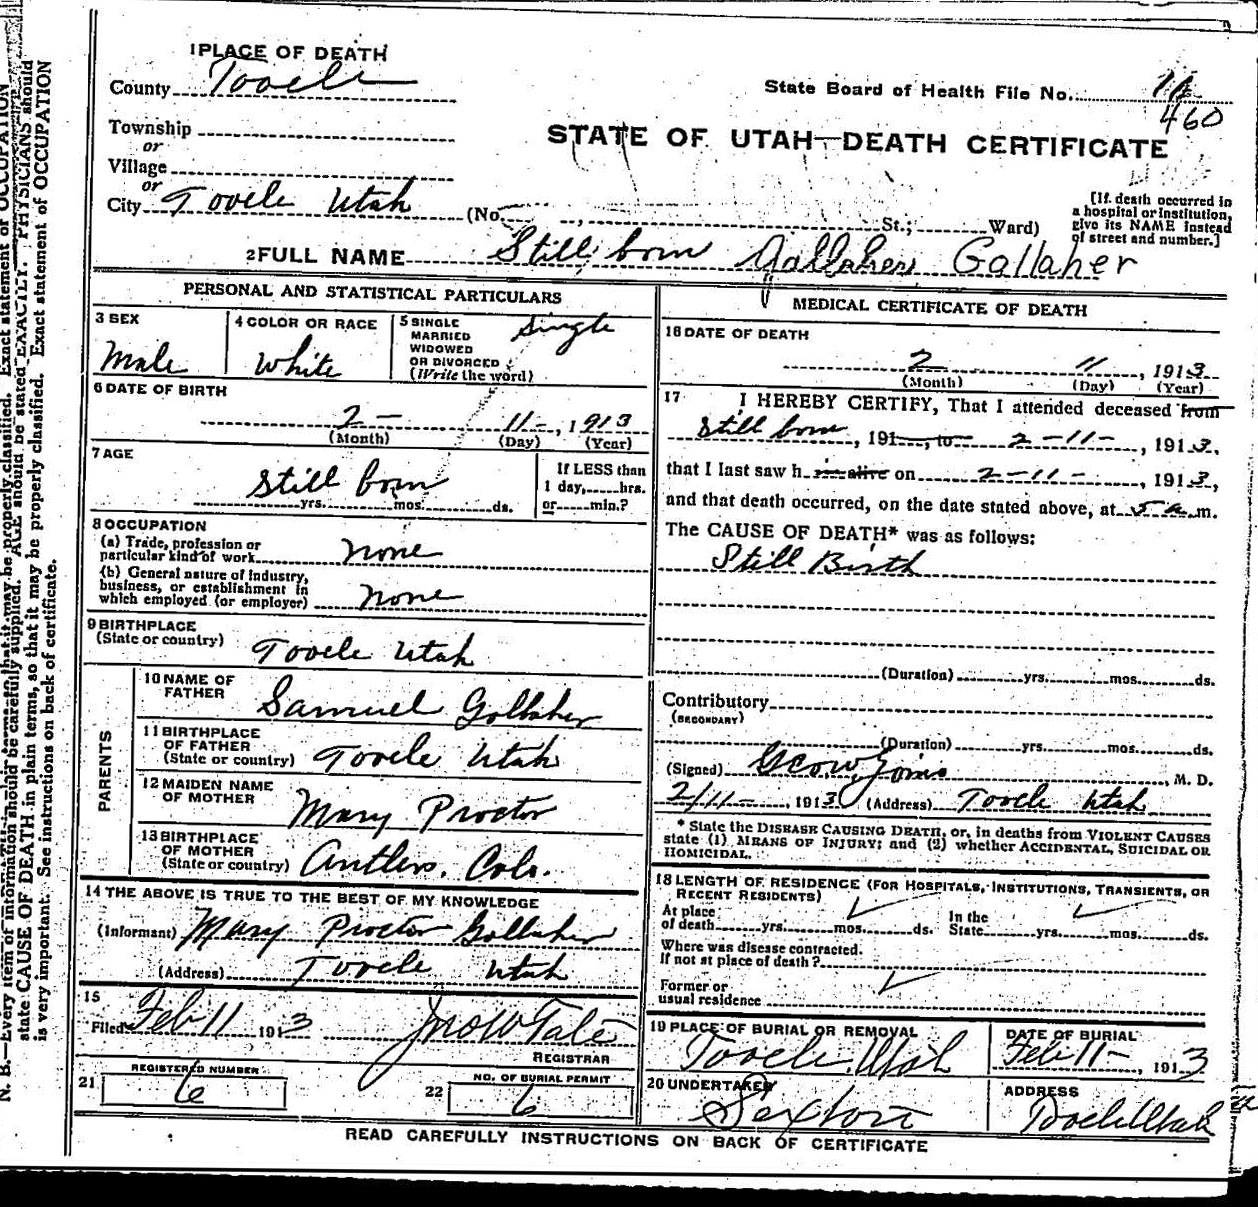 1 PLACE OF DEATH
County Tooele
State Board of Health File No. 
460
Township
or
STATE OF UTAH—DEATH CERTIFICATE
Village
or
City Tooele Utah (No. , St.; Ward)
[If death occurred in
a hospital or institution,
give its NAME instead
of street and number.]
2 FULL NAME Still born Gallaher Gallaher
PERSONAL AND STATISTICAL PARTICULARS
3 SEX
Male
4 COLOR OR RACE
White
5 SINGLE
MARRIED
WIDOWED
OR DIVORCED
(Write the word)
Single
6 DATE OF BIRTH
2 - 11 - , 1913
(Month) (Day) (Year)
7 AGE
Still born
yrs. mos. ds.
If LESS than
1 day, hrs.
or min.?
8 OCCUPATION
(a) Trade, profession or
particular kind of work none
(b) General nature of industry,
business, or establishment in
which employed (or employer) none
9 BIRTHPLACE
(State or country) Tooele Utah
PARENTS
10 NAME OF
FATHER Samuel Gollaher
11 BIRTHPLACE
OF FATHER
(State or country) Tooele Utah
12 MAIDEN NAME
OF MOTHER Mary Proctor
13 BIRTHPLACE
OF MOTHER
(State or country) Antlers, Colo.
14 THE ABOVE IS TRUE TO THE BEST OF MY KNOWLEDGE
(Informant) Mary Proctor Gollaher
(Address) Tooele Utah
15
Filed Feb 11 1913 Jno W Tate
REGISTRAR
21 REGISTERED NUMBER
6
22 NO. OF BURIAL PERMIT
6
MEDICAL CERTIFICATE OF DEATH
16 DATE OF DEATH
2 11 , 1913
(Month) (Day) (Year)
17 I HEREBY CERTIFY, That I attended deceased from
Still born, 191 , to 2 - 11 - , 1913,
that I last saw h im alive on 2 - 11 - , 1913,
and that death occurred, on the date stated above, at 5 a m.
The CAUSE OF DEATH* was as follows:
Still Birth
(Duration) yrs. mos. ds.
Contributory
(SECONDARY)
(Duration) yrs. mos. ds.
(Signed) , M. D.
2/11 - , 1913 (Address) Tooele Utah
* State the DISEASE CAUSING DEATH, or, in deaths from VIOLENT CAUSES
state (1) MEANS OF INJURY; and (2) whether ACCIDENTAL, SUICIDAL OR
HOMICIDAL.
18 LENGTH OF RESIDENCE (FOR HOSPITALS, INSTITUTIONS, TRANSIENTS, OR
RECENT RESIDENTS)
At place
of death yrs. mos. ds.
In the
State yrs. mos. ds.
Where was disease contracted.
If not at place of death?
Former or
usual residence
19 PLACE OF BURIAL OR REMOVAL
Tooele Utah
DATE OF BURIAL
Feb 11 - , 1913
20 UNDERTAKER
Sexton
ADDRESS
Tooele Utah
READ CAREFULLY INSTRUCTIONS ON BACK OF CERTIFICATE
N. B.—Every item of information should be carefully supplied. AGE should be stated EXACTLY. PHYSICIANS should
state CAUSE OF DEATH in plain terms, so that it may be properly classified. Exact statement of OCCUPATION
is very important. See instructions on back of certificate.